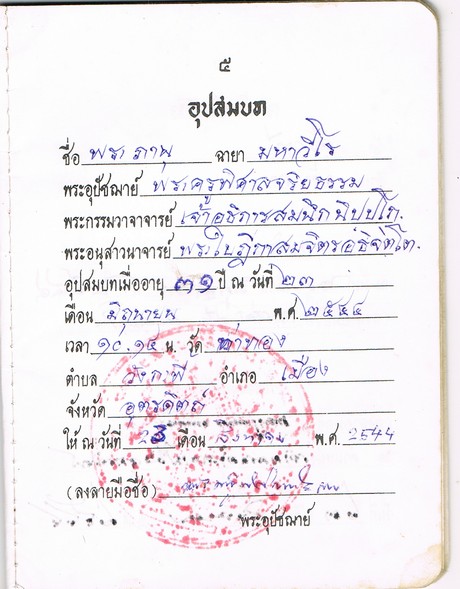 ๕
อุปสมบท
ชื่อ พระภานุ ฉายา มหาวีโร
พระอุปัชฌาย์ พระครูพิศาลจริยธรรม
พระกรรมวาจาจารย์ เจ้าอธิการสมนึก
พระอนุสาวนาจารย์ พระใบฎีกาสมจิตร
อุปสมบทเมื่ออายุ ๓๑ ปี ณ วันที่ ๒๓
เดือน มิถุนายน พ.ศ. ๒๕๔๔
เวลา ๑๐.๑๕ น. วัด ท่าทอง
ตำบล วังกะพี้ อำเภอ เมือง
จังหวัด อุตรดิตถ์
ให้ ณ วันที่ 23 เดือน สิงหาคม พ.ศ. 2544
(ลงลายมือชื่อ)
พระอุปัชฌาย์